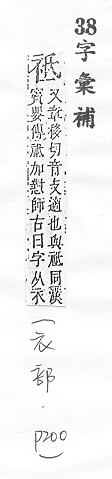 38字彙補
祇
又章移切音支適也與祗同漢
竇嬰傳祗加懟師古曰字从衣
(衣部.
P200)